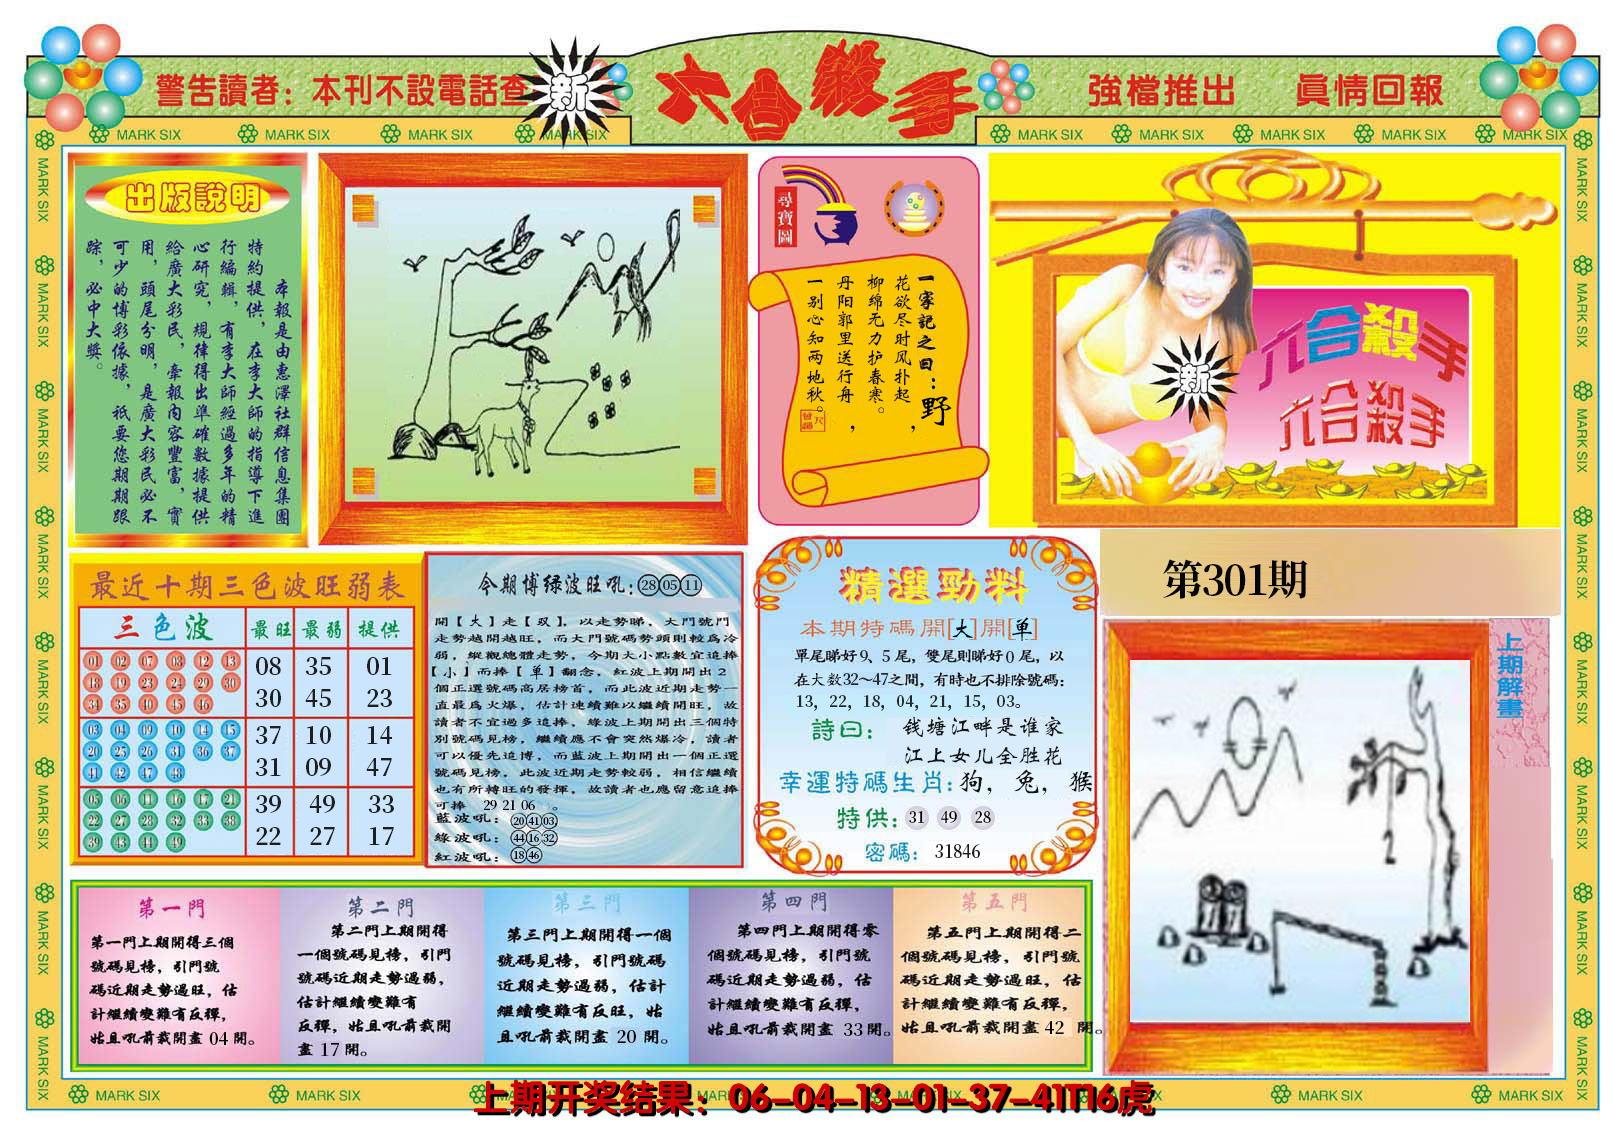 警告讀者：本刊不設電話查
新
六合殺手
強檔推出 眞情回報
MARK SIX MARK SIX MARK SIX MARK SIX MARK SIX MARK SIX MARK SIX MARK SIX MARK SIX
出版說明
本報是由惠澤社群信息集團
特約提供，在李大師的指導下進
行編輯，有李大師經過多年的精
心研究，規律得出準確數據提供
給廣大彩民，牽報內容豐富，實
用，頭尾分明，是廣大彩民必不
可少的博彩依據，祇要您期期跟
踪，必中大獎。
尋寶圖
一家記之曰：野
花欲尽时风扑起，
柳绵无力护春寒。
丹阳郭里送行舟，
一别心知两地秋。
新
六合殺手
六合殺手
第301期
最近十期三色波旺弱表
三色波 最旺 最弱 提供
01 02 07 08 12 13
18 19 23 24 29 30
34 35 40 45 46
08 35 01
30 45 23
03 04 09 10 14 15
20 25 26 31 36 37
41 42 47 48
37 10 14
31 09 47
05 06 11 16 17 21
22 27 28 32 33 38
39 43 44 49
39 49 33
22 27 17
今期博绿波旺吼：28 05 11
開【大】走【双】，以走勢睇，大門號門
走勢越開越旺，而大門號碼勢頭則較爲冷
弱，縱觀總體走勢，今期大小點數宜追捧
【小】而捧【单】翻念，紅波上期開出2
個正選號碼高居榜首，而此波近期走勢一
直最爲火爆，估計連續難以繼續開旺，故
讀者不宜過多追捧，綠波上期開出三個特
別號碼見榜，繼續應不會突然爆冷，讀者
可以優先追博，而藍波上期開出一個正選
號碼見榜，此波近期走勢較弱，相信繼續
也有所轉旺的發揮，故讀者也應留意追捧
可捧 29 21 06 。
藍波吼：20 41 03
綠波吼：44 16 32
紅波吼：18 46
精選勁料
本期特碼開[大]開[单]
單尾睇好9、5尾，雙尾則睇好0尾，以
在大数32～47之間，有時也不排除號碼：
13，22，18，04，21，15，03。
詩曰： 钱塘江畔是谁家
江上女儿全胜花
幸運特碼生肖：狗，兔，猴
特供：31 49 28
密碼：31846
上期解畫
第一門
第一門上期開得三個
號碼見榜，引門號
碼近期走勢過旺，估
計繼續變難有反彈，
姑且吼前裁開畫 04 開。
第二門
第二門上期開得
一個號碼見榜，引門
號碼近期走勢過弱，
估計繼續變難有
反彈，姑且吼前裁開
畫 17 開。
第三門
第三門上期開得一個
號碼見榜，引門號碼
近期走勢過弱，估計
繼續變難有反旺，姑
且吼前裁開畫 20 開。
第四門
第四門上期開得零
個號碼見榜，引門號
碼近期走勢過弱，估
計繼續變難有反彈，
姑且吼前裁開畫 33 開。
第五門
第五門上期開得二
個號碼見榜，引門號
碼近期走勢過旺，估
計繼續變難有反彈，
姑且吼前裁開畫 42 開。
上期开奖结果：06-04-13-01-37-41T16虎